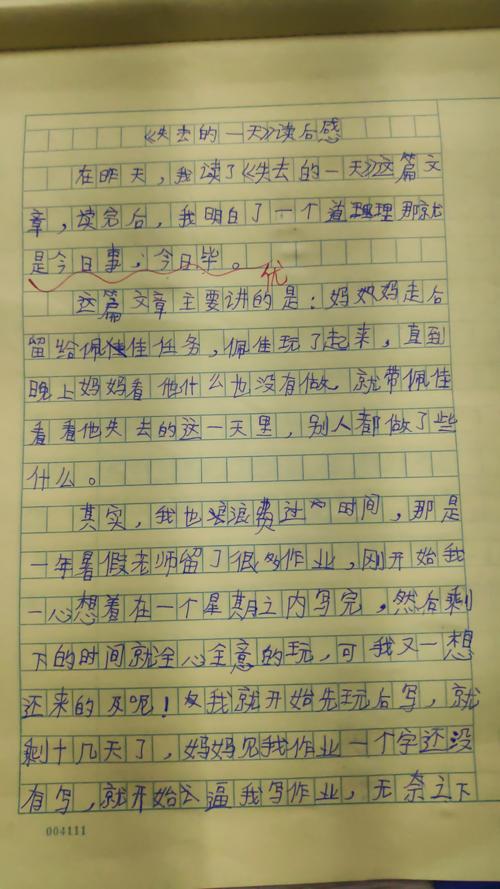 《失去的一天》读后感
在昨天，我读了《失去的一天》这篇文
章，读完后，我明白了一个道理那就
是今日事，今日毕。
优
这篇文章主要讲的是：妈妈走后
留给佩佳任务，佩佳玩了起来，直到
晚上妈妈看他什么也没有做，就带佩佳
看看他失去的这一天里，别人都做了些
什么。
其实，我也浪费过时间，那是
一年暑假老师留了很多作业，刚开始我
一心想着在一个星期之内写完，然后剩
下的时间就全心全意的玩，可我又一想
还来的及呢！我就开始先玩后写，就
剩十几天了，妈妈见我作业一个字还没
有写，就开始逼我写作业，无奈之下
004111